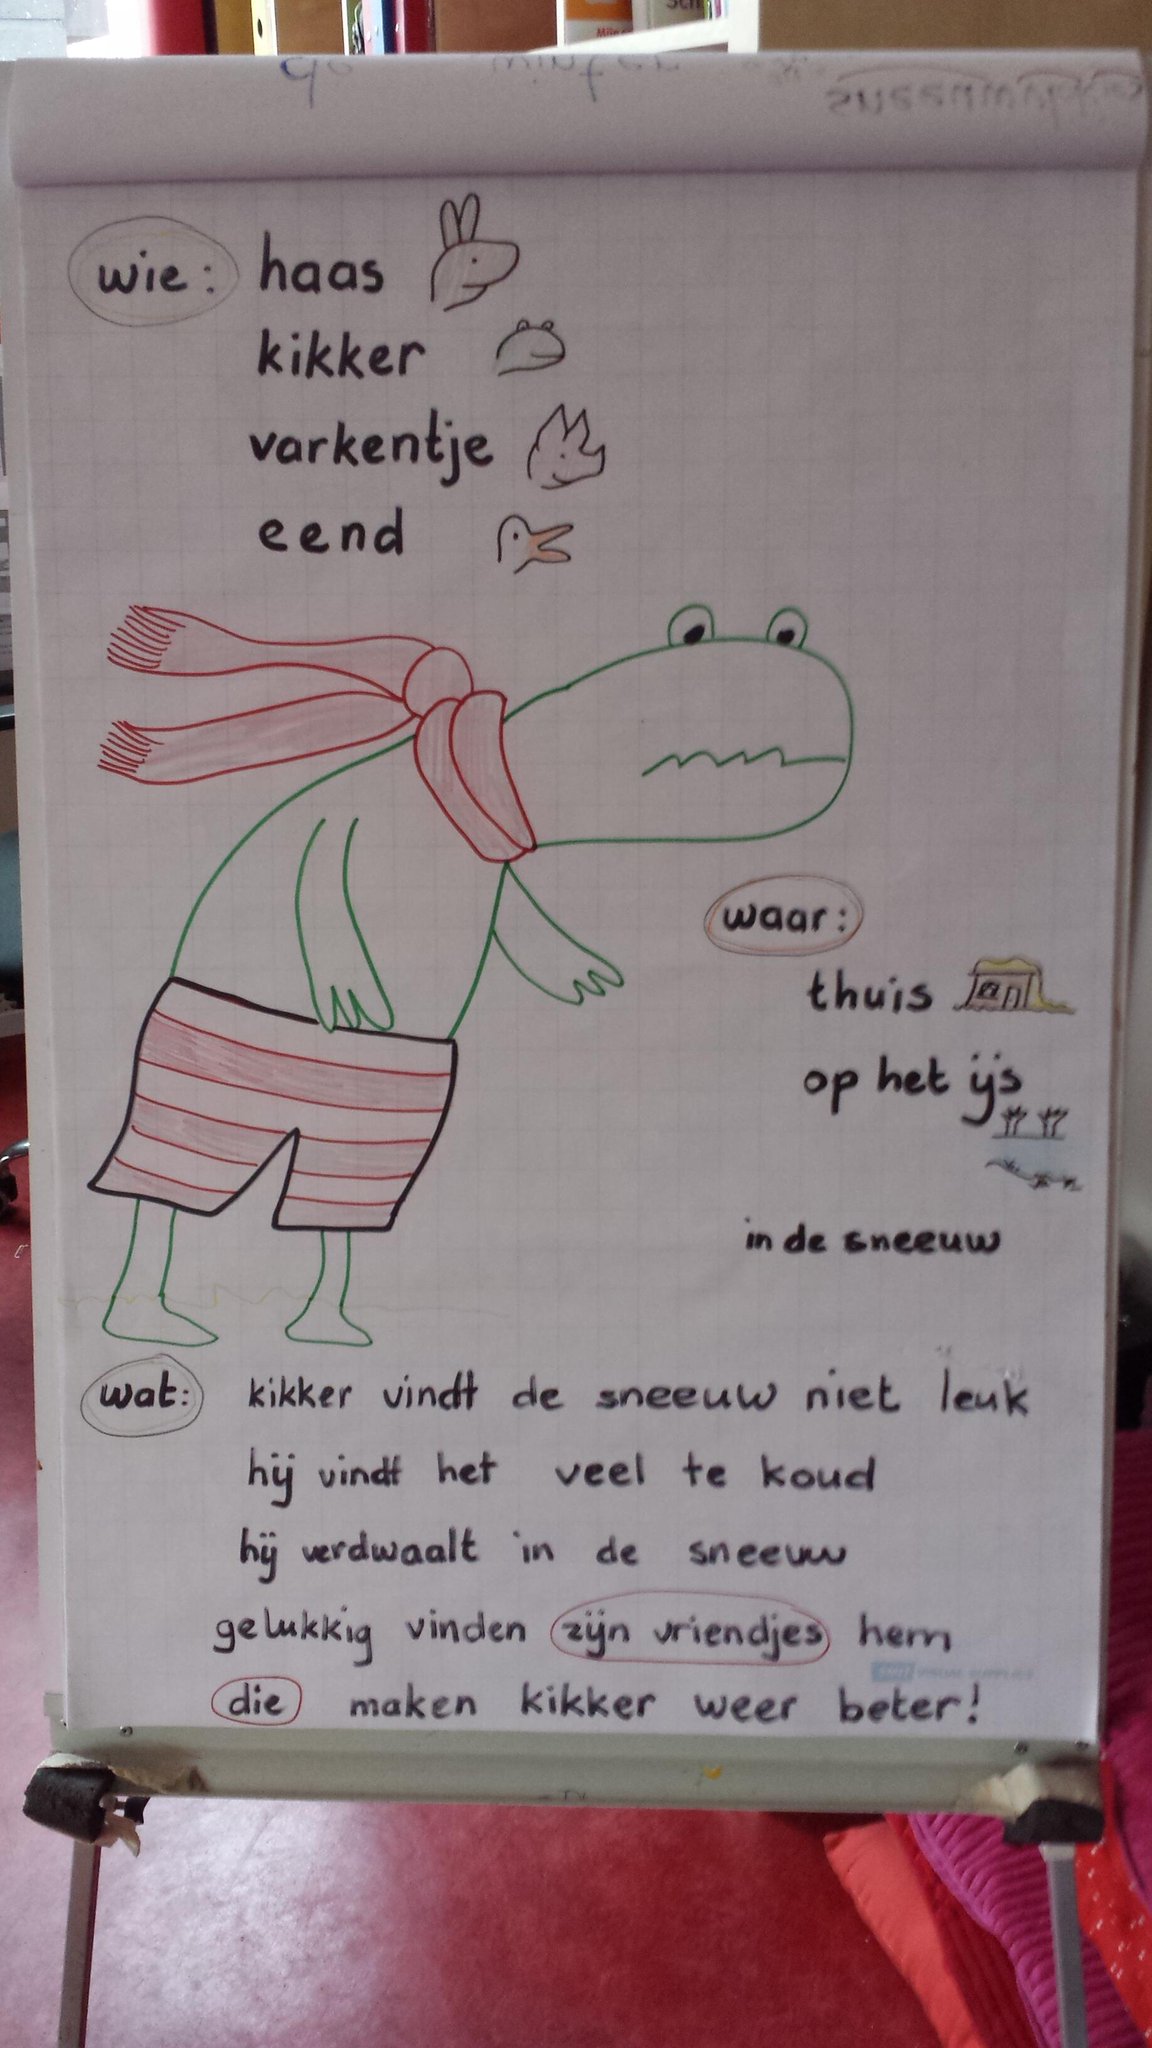 wie: haas
kikker
varkentje
eend
waar:
thuis
op het ijs
in de sneeuw
wat: kikker vindt de sneeuw niet leuk
hij vindt het veel te koud
hij verdwaalt in de sneeuw
gelukkig vinden zijn vriendjes hem
die maken kikker weer beter!